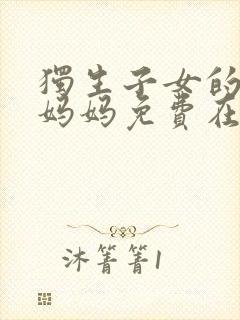 獨生子女的
妈妈免費在
沐箐箐1